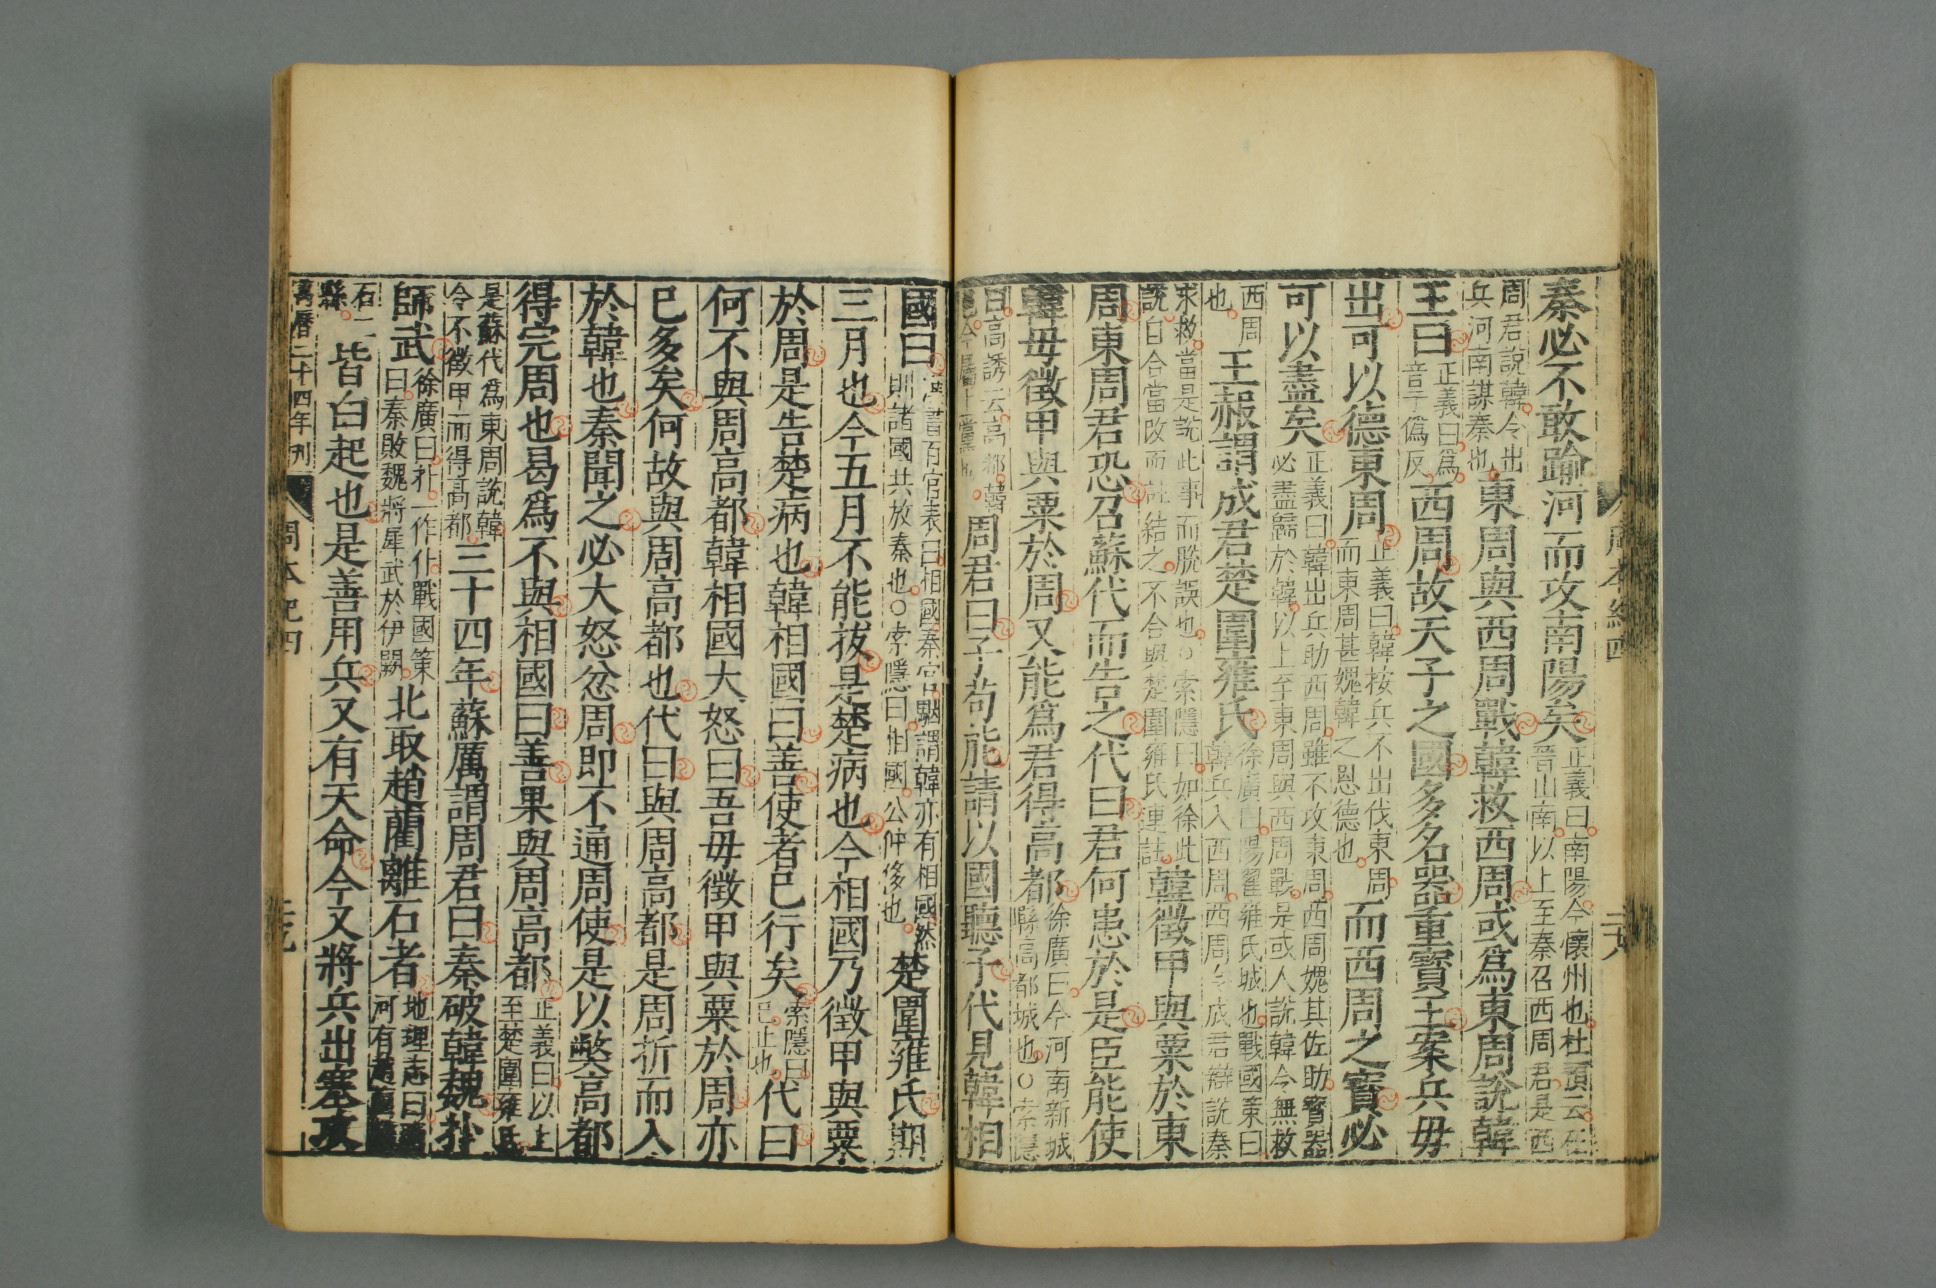 周本紀四
二十八
秦必不敢踰河而攻南陽矣正義曰南陽今懷州也杜預云在
晉山南以上至秦召西周君是西
周君說韓令出
兵河南謀秦也東周與西周戰韓救西周或爲東周說韓
王曰正義曰爲
音于僞反西周故天子之國多名器重寶王案兵毋
出可以德東周正義曰韓按兵不出伐東周
而東周甚媿韓之恩德也而西周之寶必
可以盡矣正義曰韓出兵助西周雖不攻東周西周媿其佐助寶器
必盡歸於韓以上至東周與西周戰是或人說韓令無救
西周
也王赧謂成君楚圍雍氏徐廣曰陽翟雍氏城也戰國策曰
韓兵入西周西周令成君辯說秦
求救當是說此事而脫誤也○索隱曰如徐此
說自合當改而註結之不合與楚圍雍氏連註韓徵甲與粟於東
周東周君恐召蘇代而告之代曰君何患於是臣能使
韓毋徵甲與粟於周又能爲君得高都徐廣曰今河南新城
縣高都城也○索隱
曰高誘云高都韓
邑今屬上黨也周君曰子苟能請以國聽子代見韓相
國曰漢書百官表曰相國秦官駰謂韓亦有相國然
則諸國共放秦也○索隱曰相國公仲侈也楚圍雍氏期
三月也今五月不能拔是楚病也今相國乃徵甲與粟
於周是告楚病也韓相國曰善使者已行矣索隱曰
已止也代曰
何不與周高都韓相國大怒曰吾毋徵甲與粟於周亦
已多矣何故與周高都也代曰與周高都是周折而入
於韓也秦聞之必大怒忿周即不通周使是以獘高都
得完周也曷爲不與相國曰善果與周高都正義曰以上
至楚圍雍氏
是蘇代爲東周說韓
令不徵甲而得高都三十四年蘇厲謂周君曰秦破韓魏扑
師武徐廣曰扑一作仆戰國策
曰秦敗魏將犀武於伊闕北取趙藺離石者地理志曰
河有藺
石二
縣皆白起也是善用兵又有天命今又將兵出塞攻
萬曆二十四年刊
周本紀四
二十九